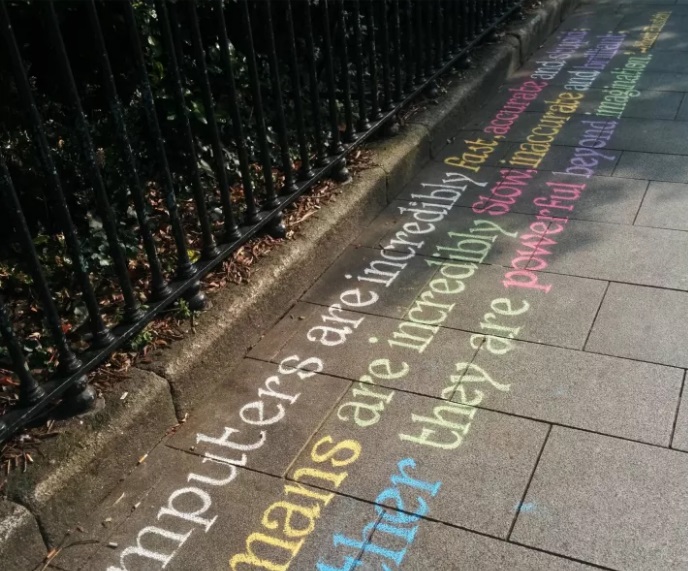 mputers are incredibly fast accurate and stupid.
mans are incredibly slow, inaccurate and brilliant.
ther they are powerful beyond imagination.